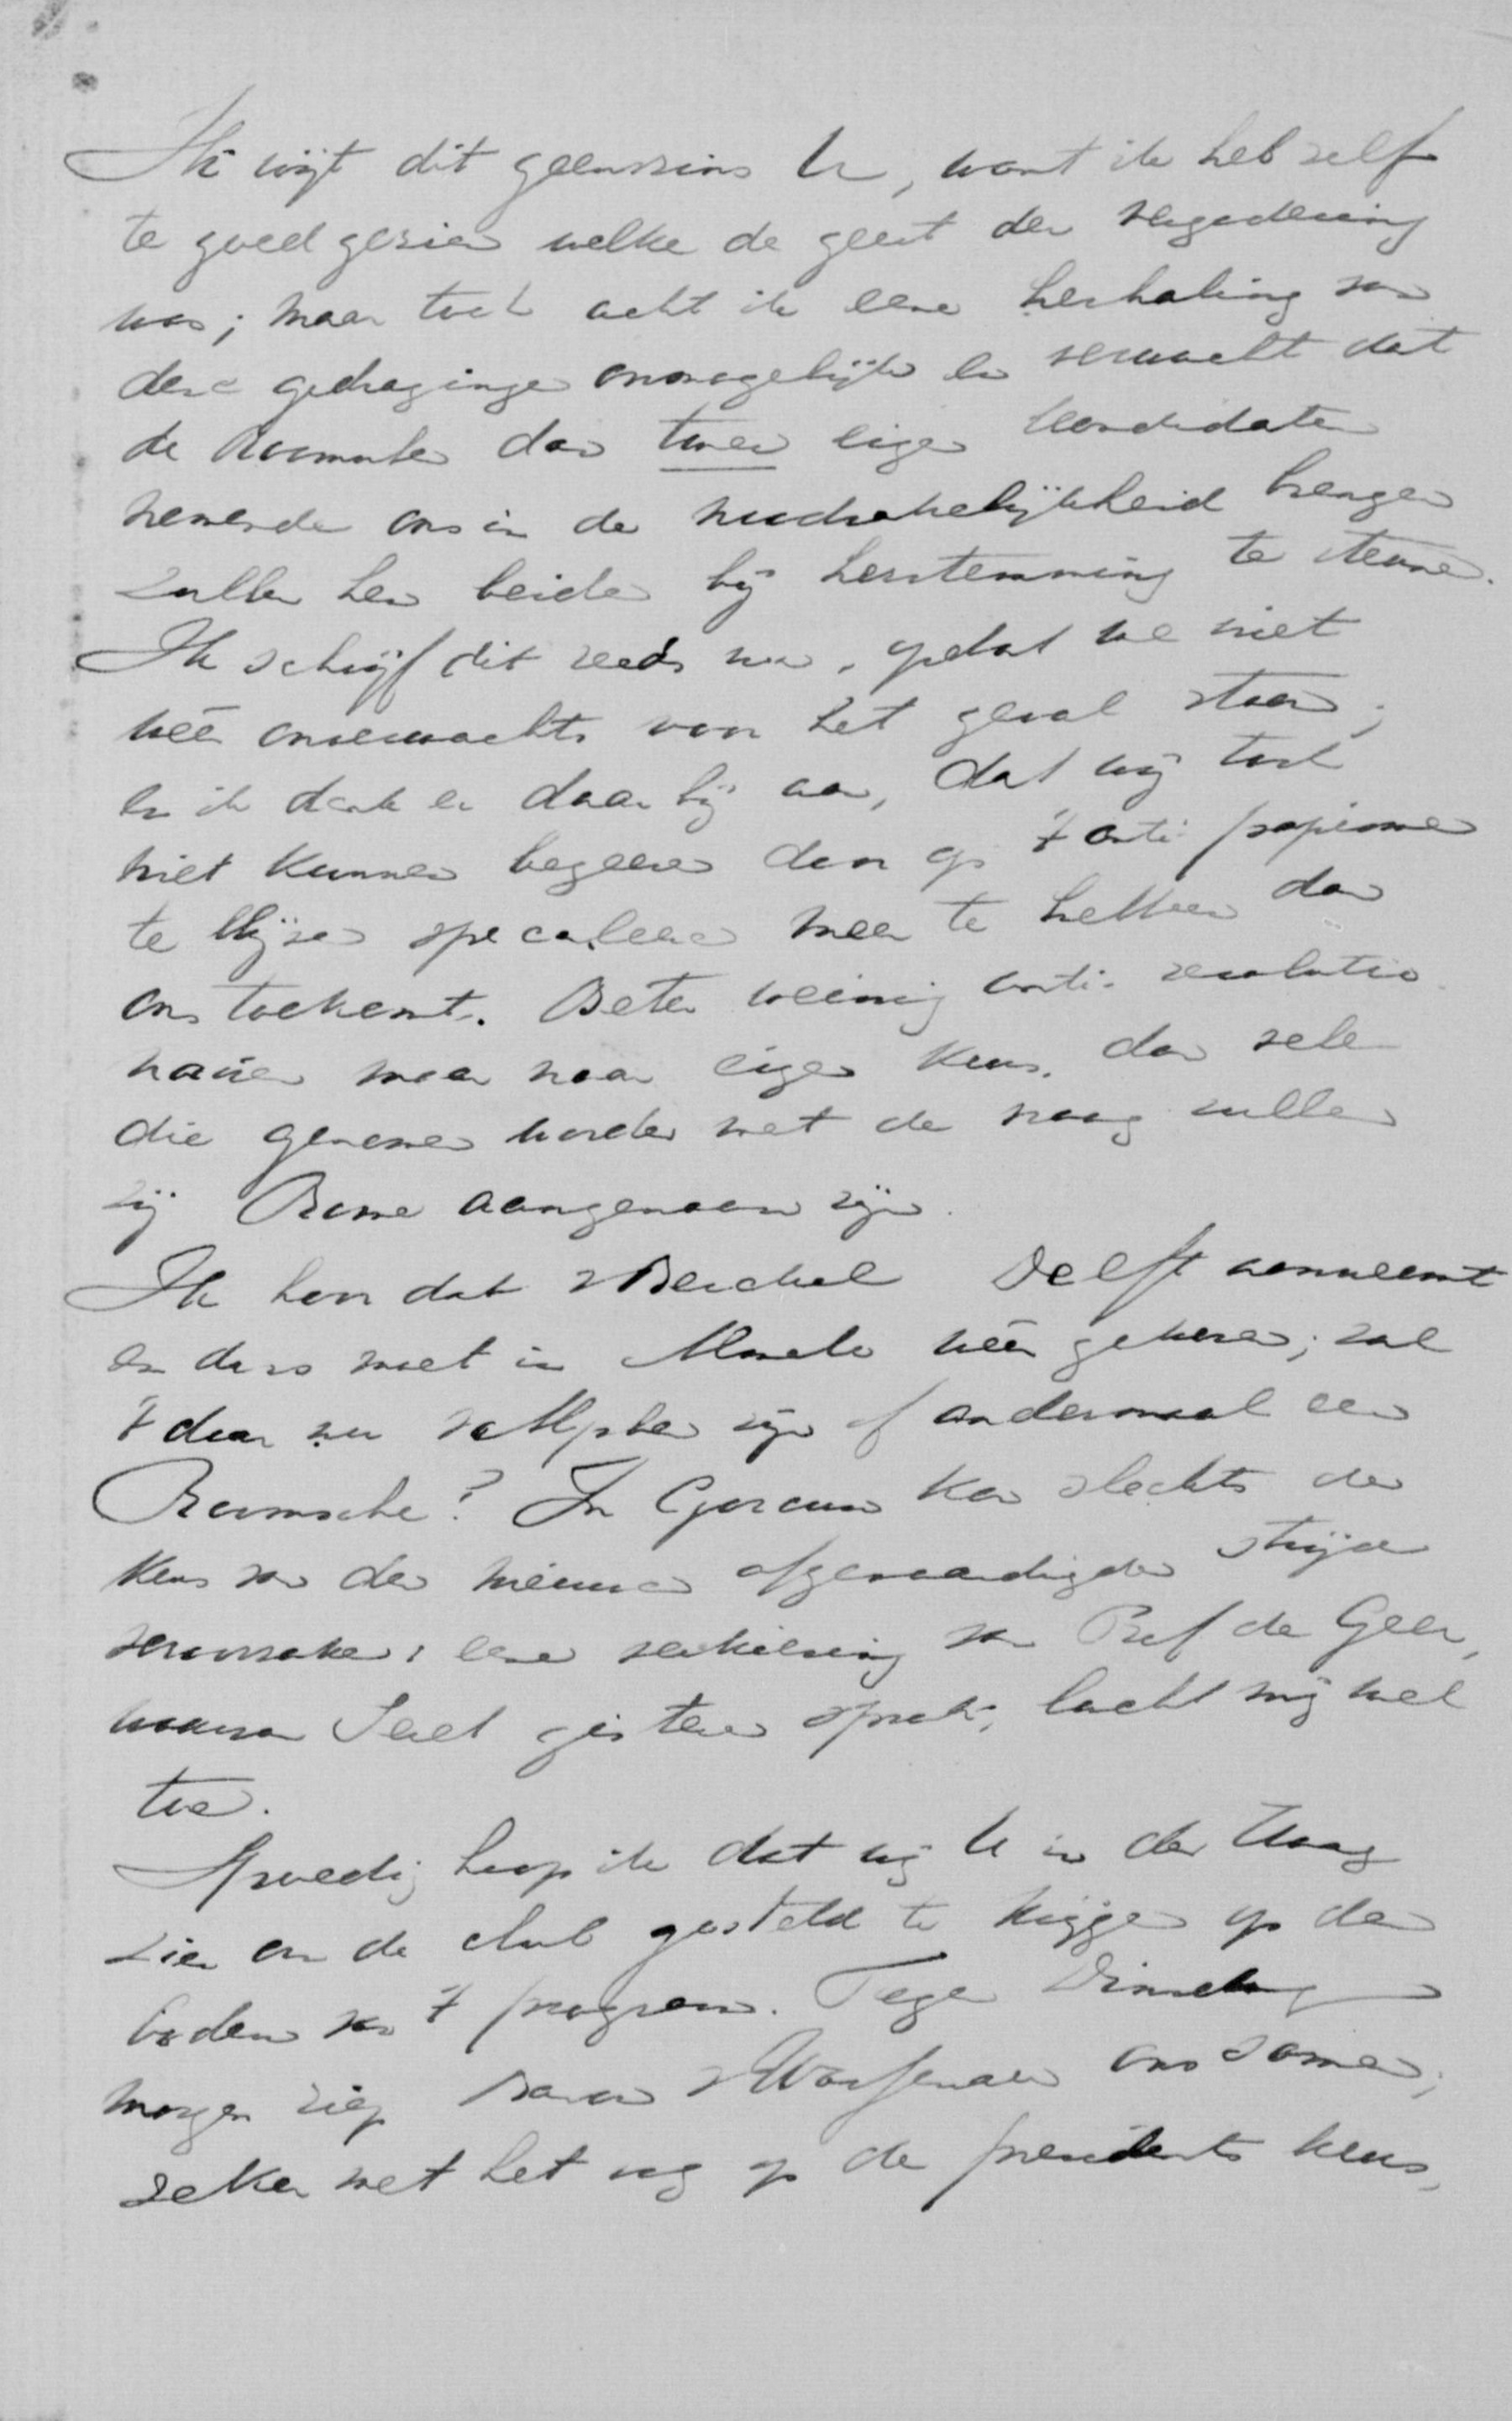 Ik wijt dit geenszins U, want ik heb zelf
te goed gezien welke de geest der vergadering
was; maar toch acht ik eene herhaling van
deze gedragingen onmogelijk en verwacht dat
de Roomschen dan twee eigen kandidaten
nemende ons in de noodzakelijkheid brengen
zullen hen beiden bij herstemming te steunen.
Ik schrijf dit reeds nu, opdat we niet
wéér onverwachts voor het geval staan;
en ik denk er daarbij aan, dat wij toch
niet kunnen begeeren door op 't anti papisme
te blijven speculeeren meer te hebben dan
ons toekomt. Beter weinig anti-revolutio
nairen maar naar eigen keus, dan velen
die genomen worden met de vraag zullen
zij Rome aangenaam zijn.
Ik hoor dat v Berckel Delft aanneemt
en dus moet in Almelo wéér gekozen; zal
't daar nu v Alphen zijn of andermaal een
Roomsche? In Gorcum kan slechts de
keus van den nieuwen afgevaardigde strijd
veroorzaken; eene verkiezing van Prof de Geer,
waarvan Seret gisteren sprak, lacht mij wel
toe.
Spoedig hoop ik dat wij U in den Haag
zien om de club gesteld te krijgen op den
bodem van 't program. Tegen Dinsdag
morgen riep Baron v Wassenaer ons samen,
zeker met het oog op de presidents keus,